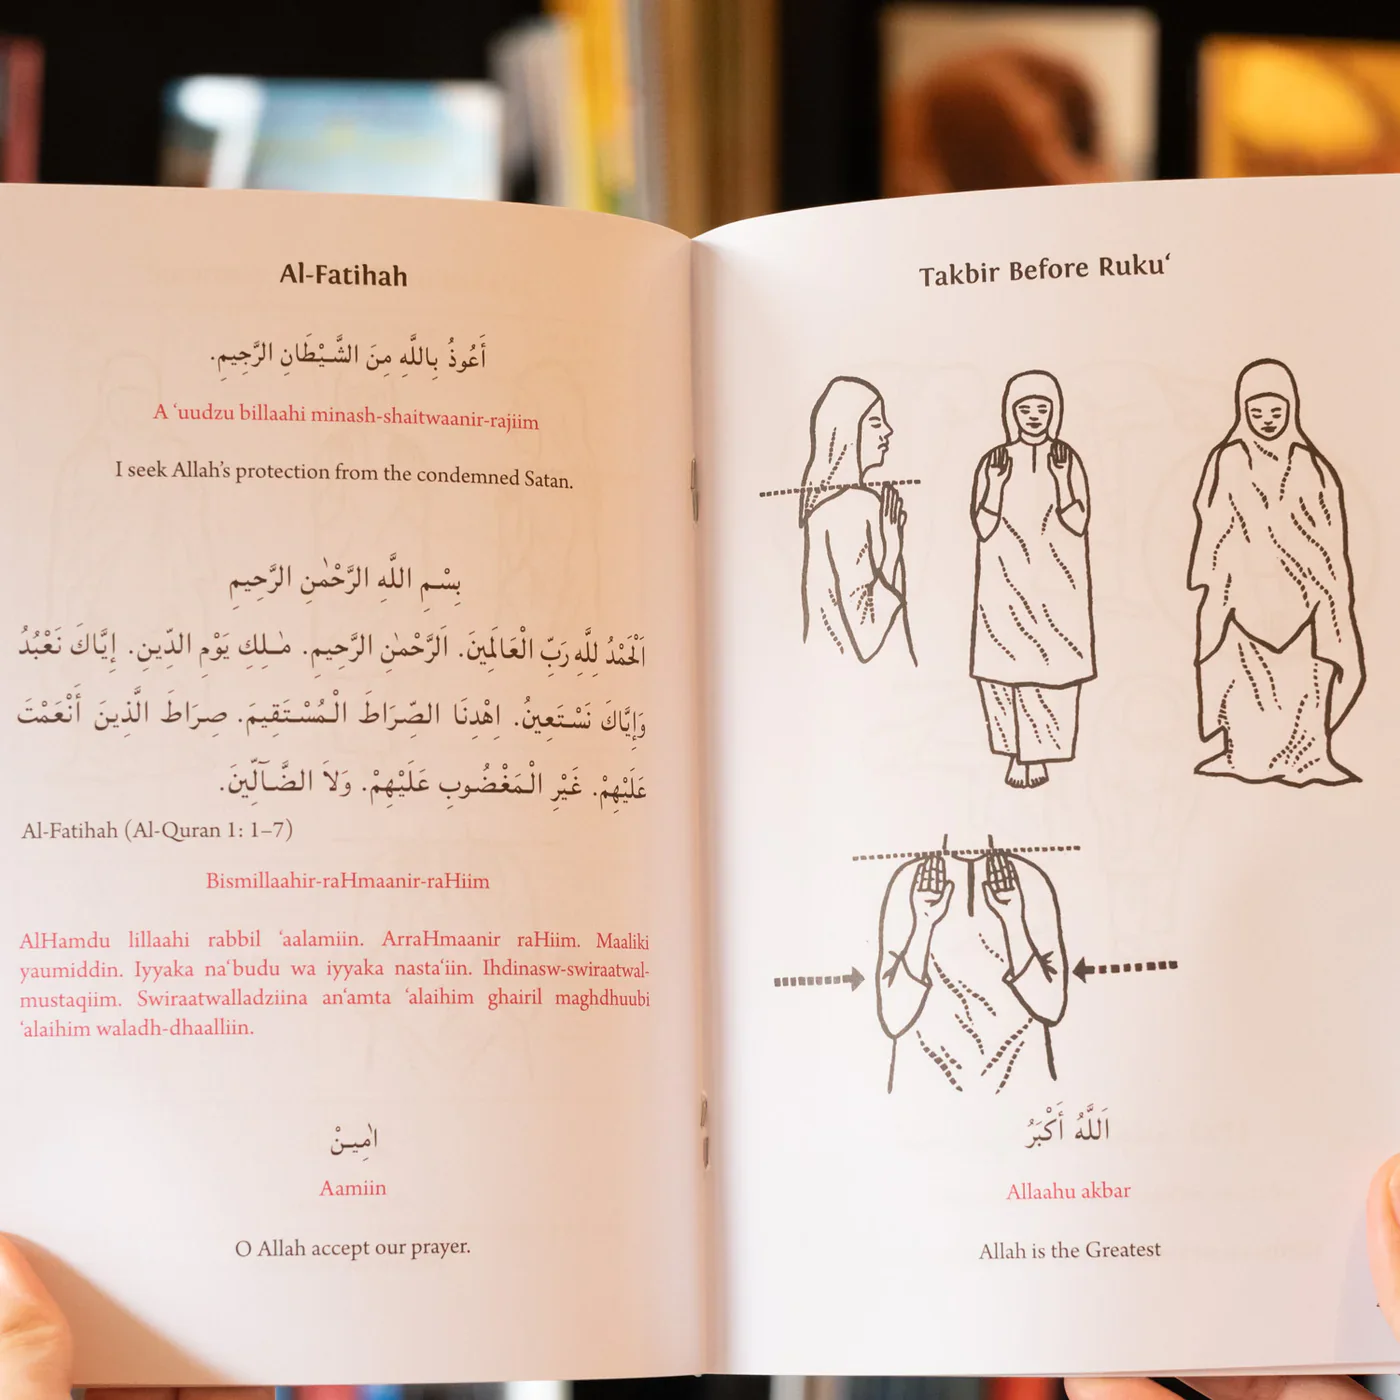 Al-Fatihah
أَعُوذُ بِاللَّهِ مِنَ الشَّيْطَانِ الرَّجِيمِ.
A ‘uudzu billaahi minash-shaitwaanir-rajiim
I seek Allah’s protection from the condemned Satan.
بِسْمِ اللَّهِ الرَّحْمٰنِ الرَّحِيمِ
اَلْحَمْدُ لِلَّهِ رَبِّ الْعَالَمِينَ. اَلرَّحْمٰنِ الرَّحِيمِ. مٰلِكِ يَوْمِ الدِّينِ. إِيَّاكَ نَعْبُدُ
وَإِيَّاكَ نَسْتَعِينُ. اِهْدِنَا الصِّرَاطَ الْمُسْتَقِيمَ. صِرَاطَ الَّذِينَ أَنْعَمْتَ
عَلَيْهِمْ. غَيْرِ الْمَغْضُوبِ عَلَيْهِمْ. وَلاَ الضَّآلِّينَ.
Al-Fatihah (Al-Quran 1: 1–7)
Bismillaahir-raHmaanir-raHiim
AlHamdu lillaahi rabbil ‘aalamiin. ArraHmaanir raHiim. Maaliki
yaumiddin. Iyyaka na‘budu wa iyyaka nasta‘iin. Ihdinasw-swiraatwal-
mustaqiim. Swiraatwalladziina an‘amta ‘alaihim ghairil maghdhuubi
‘alaihim waladh-dhaalliin.
اٰمِينْ
Aamiin
O Allah accept our prayer.
Takbir Before Ruku‘
اَللَّهُ أَكْبَرُ
Allaahu akbar
Allah is the Greatest